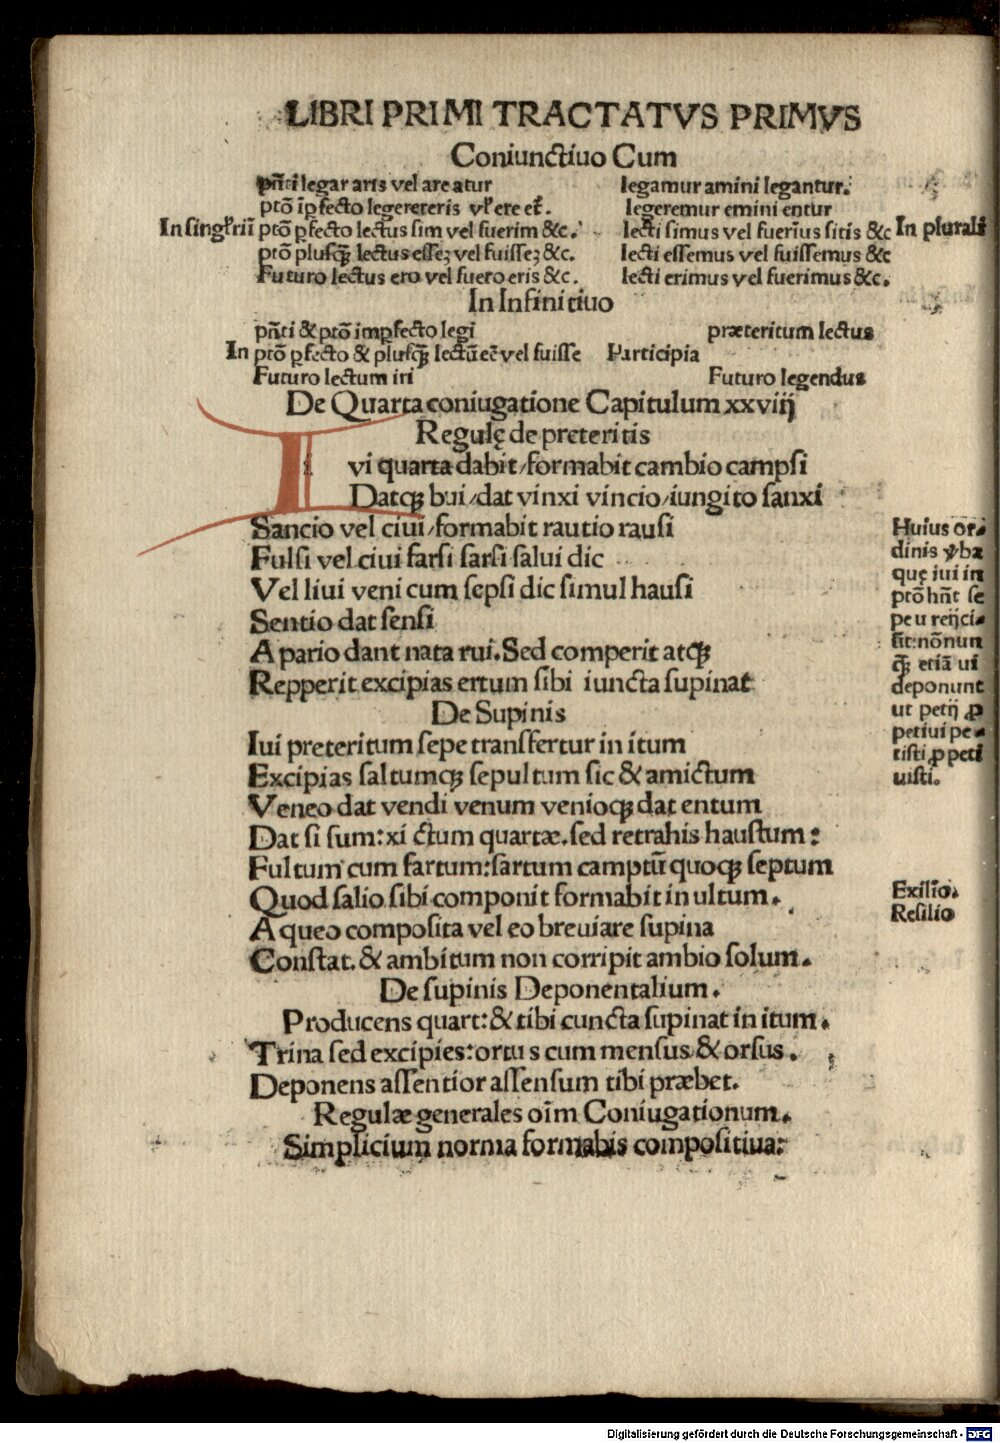 LIBRI PRIMI TRACTATVS PRIMVS
Coniunctiuo Cum
pñti legar aris vel are atur legamur amini legantur.
ptõ īꝑfecto legerereris vꝉ ere et̃. legeremur emini entur
In singꝉrií ptõ ꝑfecto lectus sim vel fuerim &c. lecti simus vel fuerīus sitis &c In plurali
ptõ plusꝙ̃ lectus esseꝫ vel fuisseꝫ &c. lecti essemus vel fuissemus &c
Futuro lectus ero vel fuero eris &c. lecti erimus vel fuerimus &c.
In Infinitiuo
pñti & ptõ imꝑfecto legi præteritum lectus
In ptõ ꝑfecto & plusꝙ̃ lectū eē vel fuisse Participia
Futuro lectum iri Futuro legendus
De Quarta coniugatione Capitulum xxviij
Regulę de preteritis
I
vi quarta dabit/formabit cambio campsi
Datqꝫ bui/dat vinxi vincio/iungito sanxi
Sancio vel ciui/formabit rautio rausi
Fulsi vel ciui farsi sarsi salui dic
Vel liui veni cum sepsi dic simul hausi
Sentio dat sensi
A pario dant nata rui. Sed comperit atqꝫ
Repperit excipias ertum sibi iuncta supinat
De Supinis
Iui preteritum sepe transfertur in itum
Excipias saltumqꝫ sepultum sic & amictum
Veneo dat vendi venum venioqꝫ dat entum
Dat si sum: xi ctum quartæ. sed retrahis haustum:
Fultum cum fartum: sartum camptū quoqꝫ septum
Quod salio sibi componit formabit in ultum.
A queo composita vel eo breuiare supina
Constat. & ambitum non corripit ambio solum.
De supinis Deponentalium.
Producens quart: & tibi cuncta supinat in itum.
Trina sed excipies: ortus cum mensus & orsus.
Deponens assentior assensum tibi præbet.
Regulæ generales oīm Coniugationum.
Simplicium norma formabis compositiua:
Huius or-
dinis v̓ba
quę iui in
ptõ hñt se
pe u reijci-
ūt: nõnun
ꝙ̃ etiã ui
deponunt
ut petij ꝓ
petiui pe-
tisti ꝓ peti
uisti.
Exilio.
Resilio
Digitalisierung gefördert durch die Deutsche Forschungsgemeinschaft - DFG